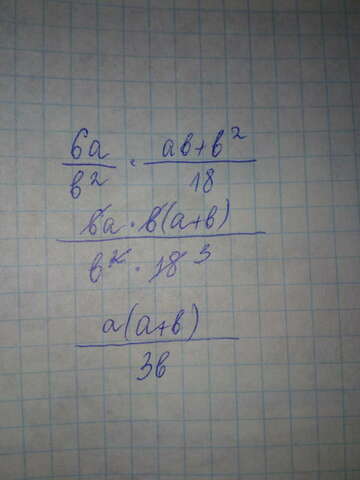 6a/b² · ab+b²/18
6a · b(a+b)/b² · 18 3
a(a+b)/3b